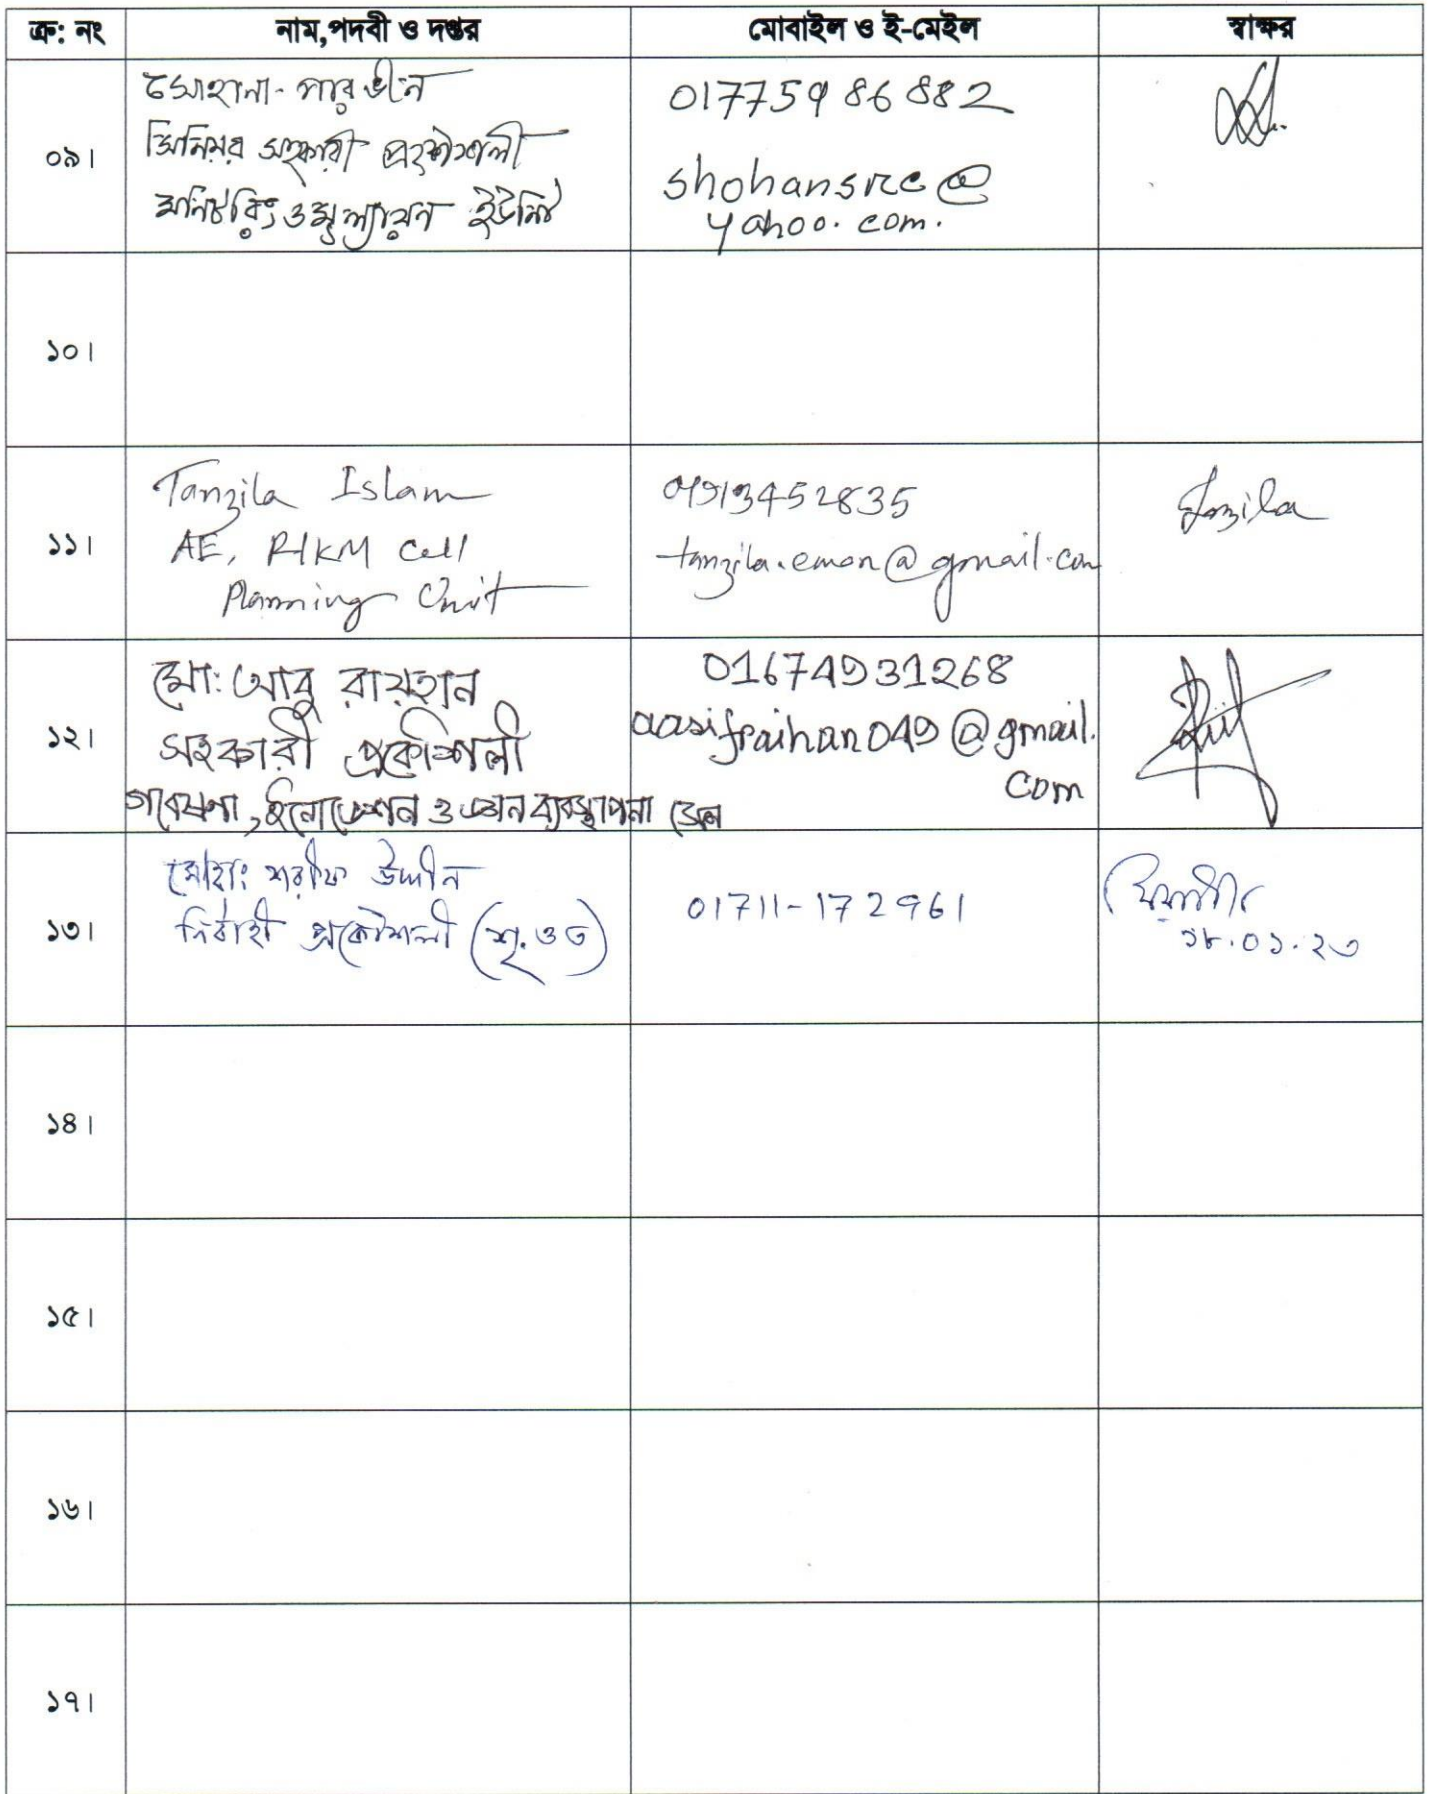 ক্র: নং নাম,পদবী ও দপ্তর মোবাইল ও ই-মেইল স্বাক্ষর
০৯। সোহানা পারভীন
সিনিয়র সহকারী প্রকৌশলী
মনিটরিং ও মূল্যায়ন ইউনিট
shohansrc@
yahoo.com.
১০।
১১। Tanzila Islam
AE, RIKM Cell
Planning Unit
tanzila.emon@gmail.com
Tanzila
১২। মো: আবু রায়হান
সহকারী প্রকৌশলী
গবেষণা, ইনোভেশন ও জ্ঞান ব্যবস্থাপনা সেল
01674931268
aasifraihan049@gmail.
com
১৩। মোহাঃ শরীফ উদ্দীন
নির্বাহী প্রকৌশলী
01711-172961
১৮.০১.২৩
১৪।
১৫।
১৬।
১৭।